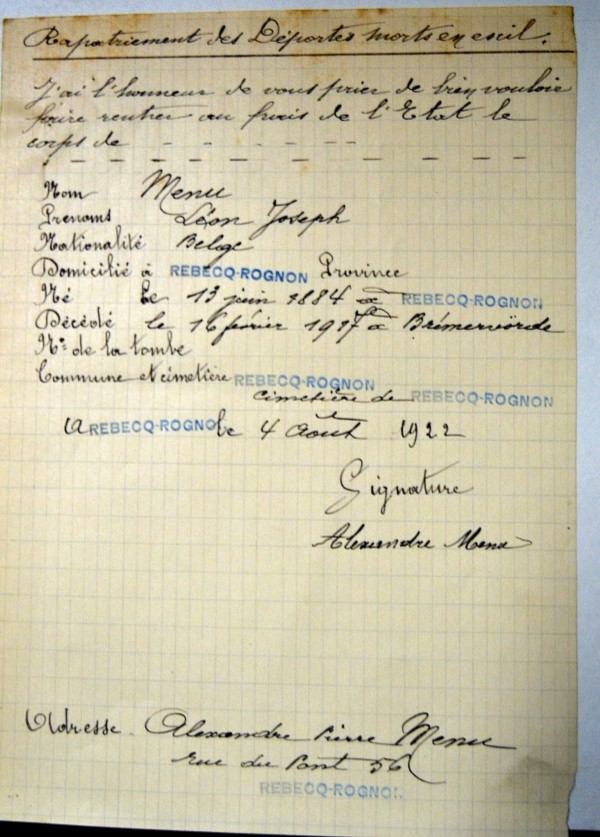 Rapatriement des Déportés morts en exil.
J'ai l'honneur de vous prier de bien vouloir
faire rentrer au frais de l'Etat le
corps de - - - - - -
Nom Menu
Prenoms Léon Joseph
Nationalité Belge
Domicilié à REBECQ-ROGNON Province
Né le 13 juin 1884 à REBECQ-ROGNON
Décédé le 16 février 1917 à Brémervörde
N° de la tombe
Commune et cimetière REBECQ-ROGNON
cimetière de REBECQ-ROGNON
A REBECQ-ROGNO le 4 Août 1922
Signature
Alexandre Menu
Adresse. Alexandre Pierre Menu
rue du Pont 56
REBECQ-ROGNON